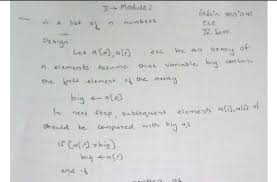 II → Module I
in a list of n numbers
CSE
IV Sem
Design
Let a[0], a[1] .. etc be an array of
n elements. Assume that variable big contains
the first element of the array
big ← a[0]
In next step, subsequent elements a[i], a[i] of
should be compared with big as
if (a[i] > big)
big ← a[i]
end if